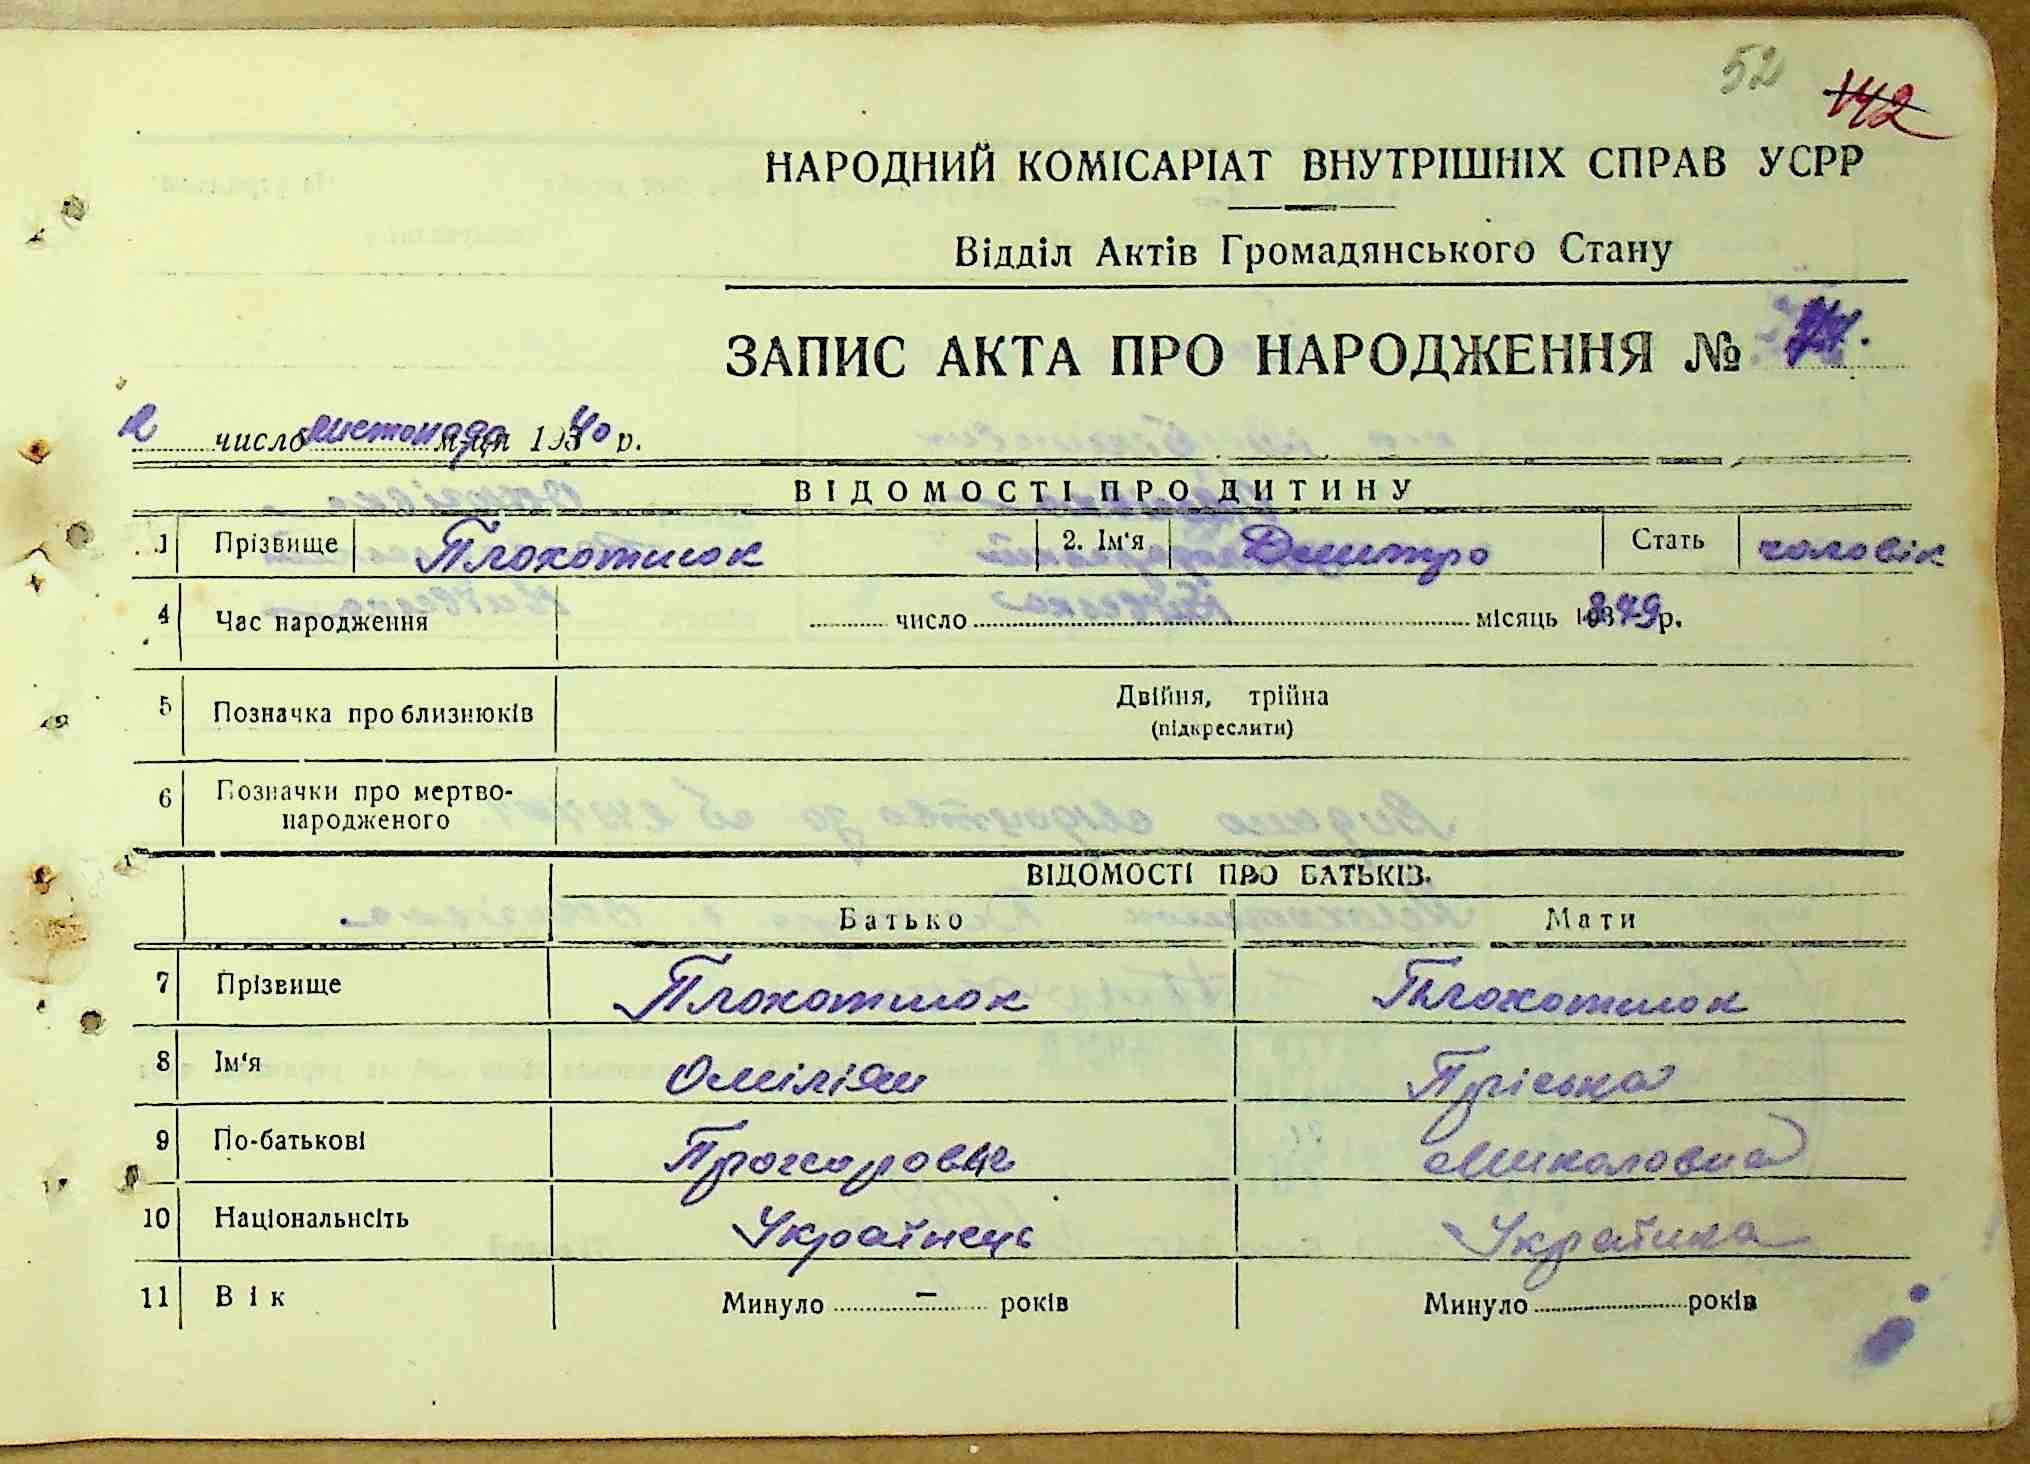 52 142
НАРОДНИЙ КОМІСАРІАТ ВНУТРІШНІХ СПРАВ УСРР
Відділ Актів Громадянського Стану
ЗАПИС АКТА ПРО НАРОДЖЕННЯ №
2 число листопада м-ця 1940 р.
ВІДОМОСТІ ПРО ДИТИНУ
1 Прізвище Плохотнюк 2. Ім'я Дмитро Стать чоловік
4 Час народження число місяць 1879 р.
5 Позначка про близнюків Двійня, трійна
(підкреслити)
6 Позначки про мертво-
народженого
ВІДОМОСТІ ПРО БАТЬКІВ.
Батько Мати
7 Прізвище Плохотнюк Плохотнюк
8 Ім'я Оміліян Пріська
9 По-батькові Прохорович Миколовна
10 Національнсіть Українець Українка
11 Вік Минуло – років Минуло років